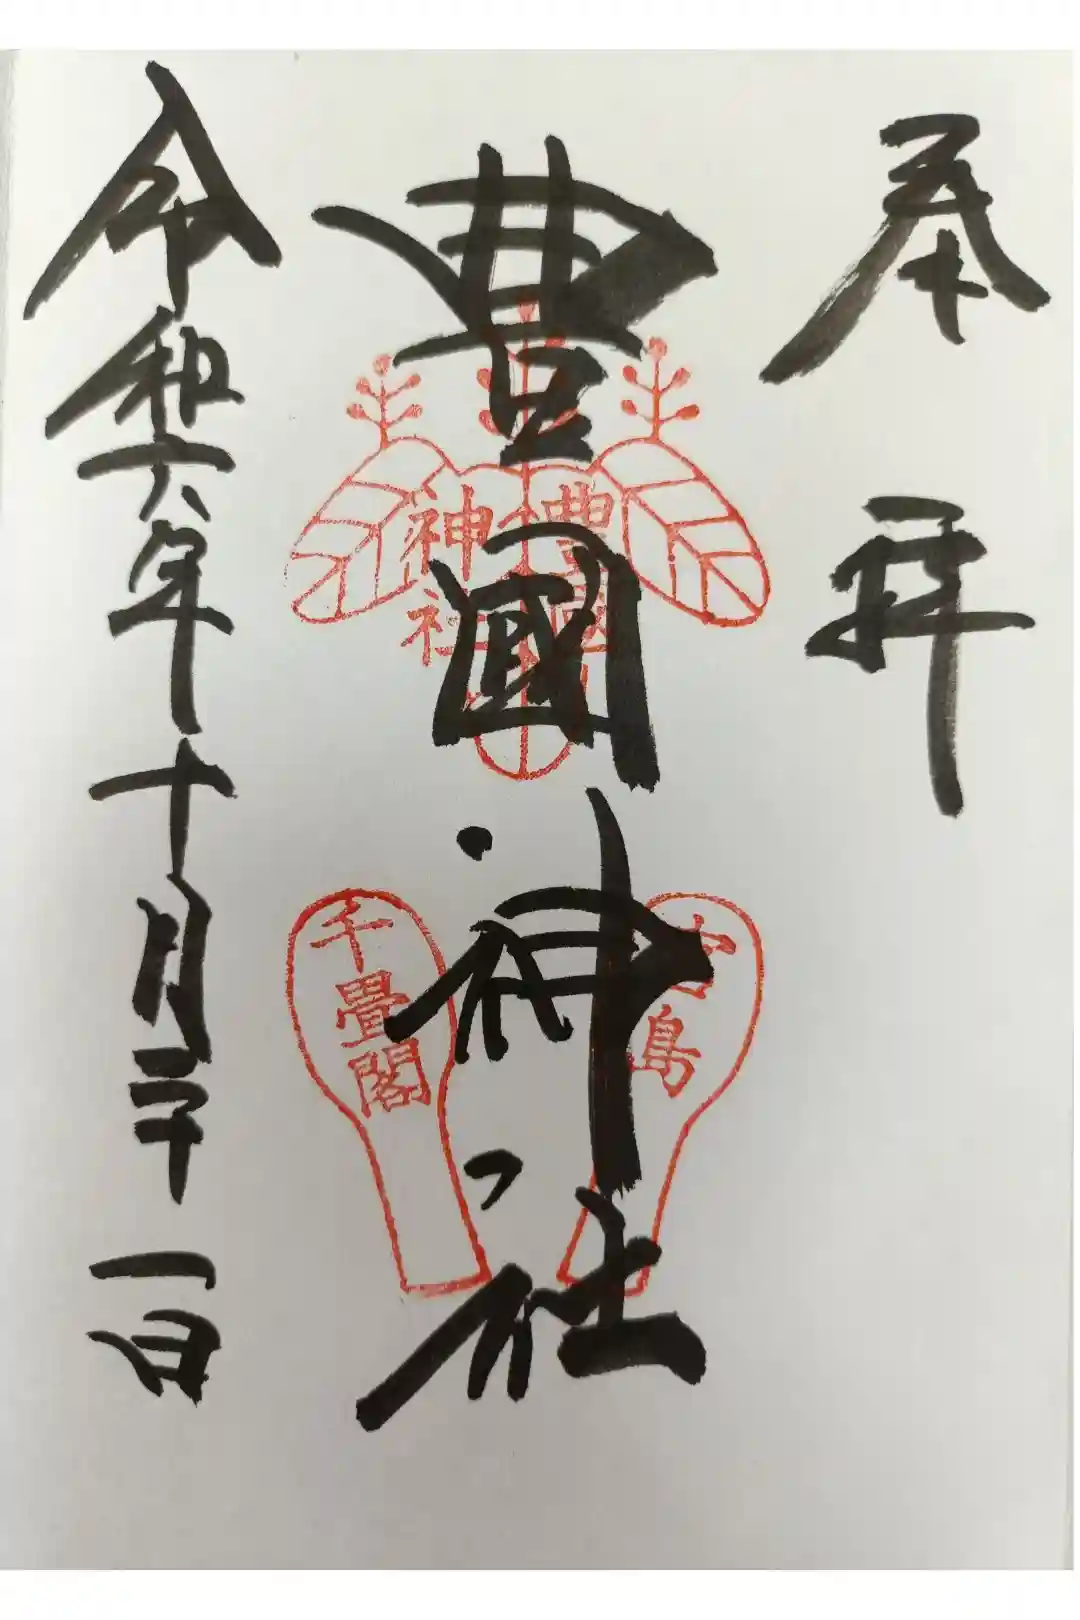 奉拝
豊國神社
令和六年十月三十一日
豊國
神社
宮島
千畳閣